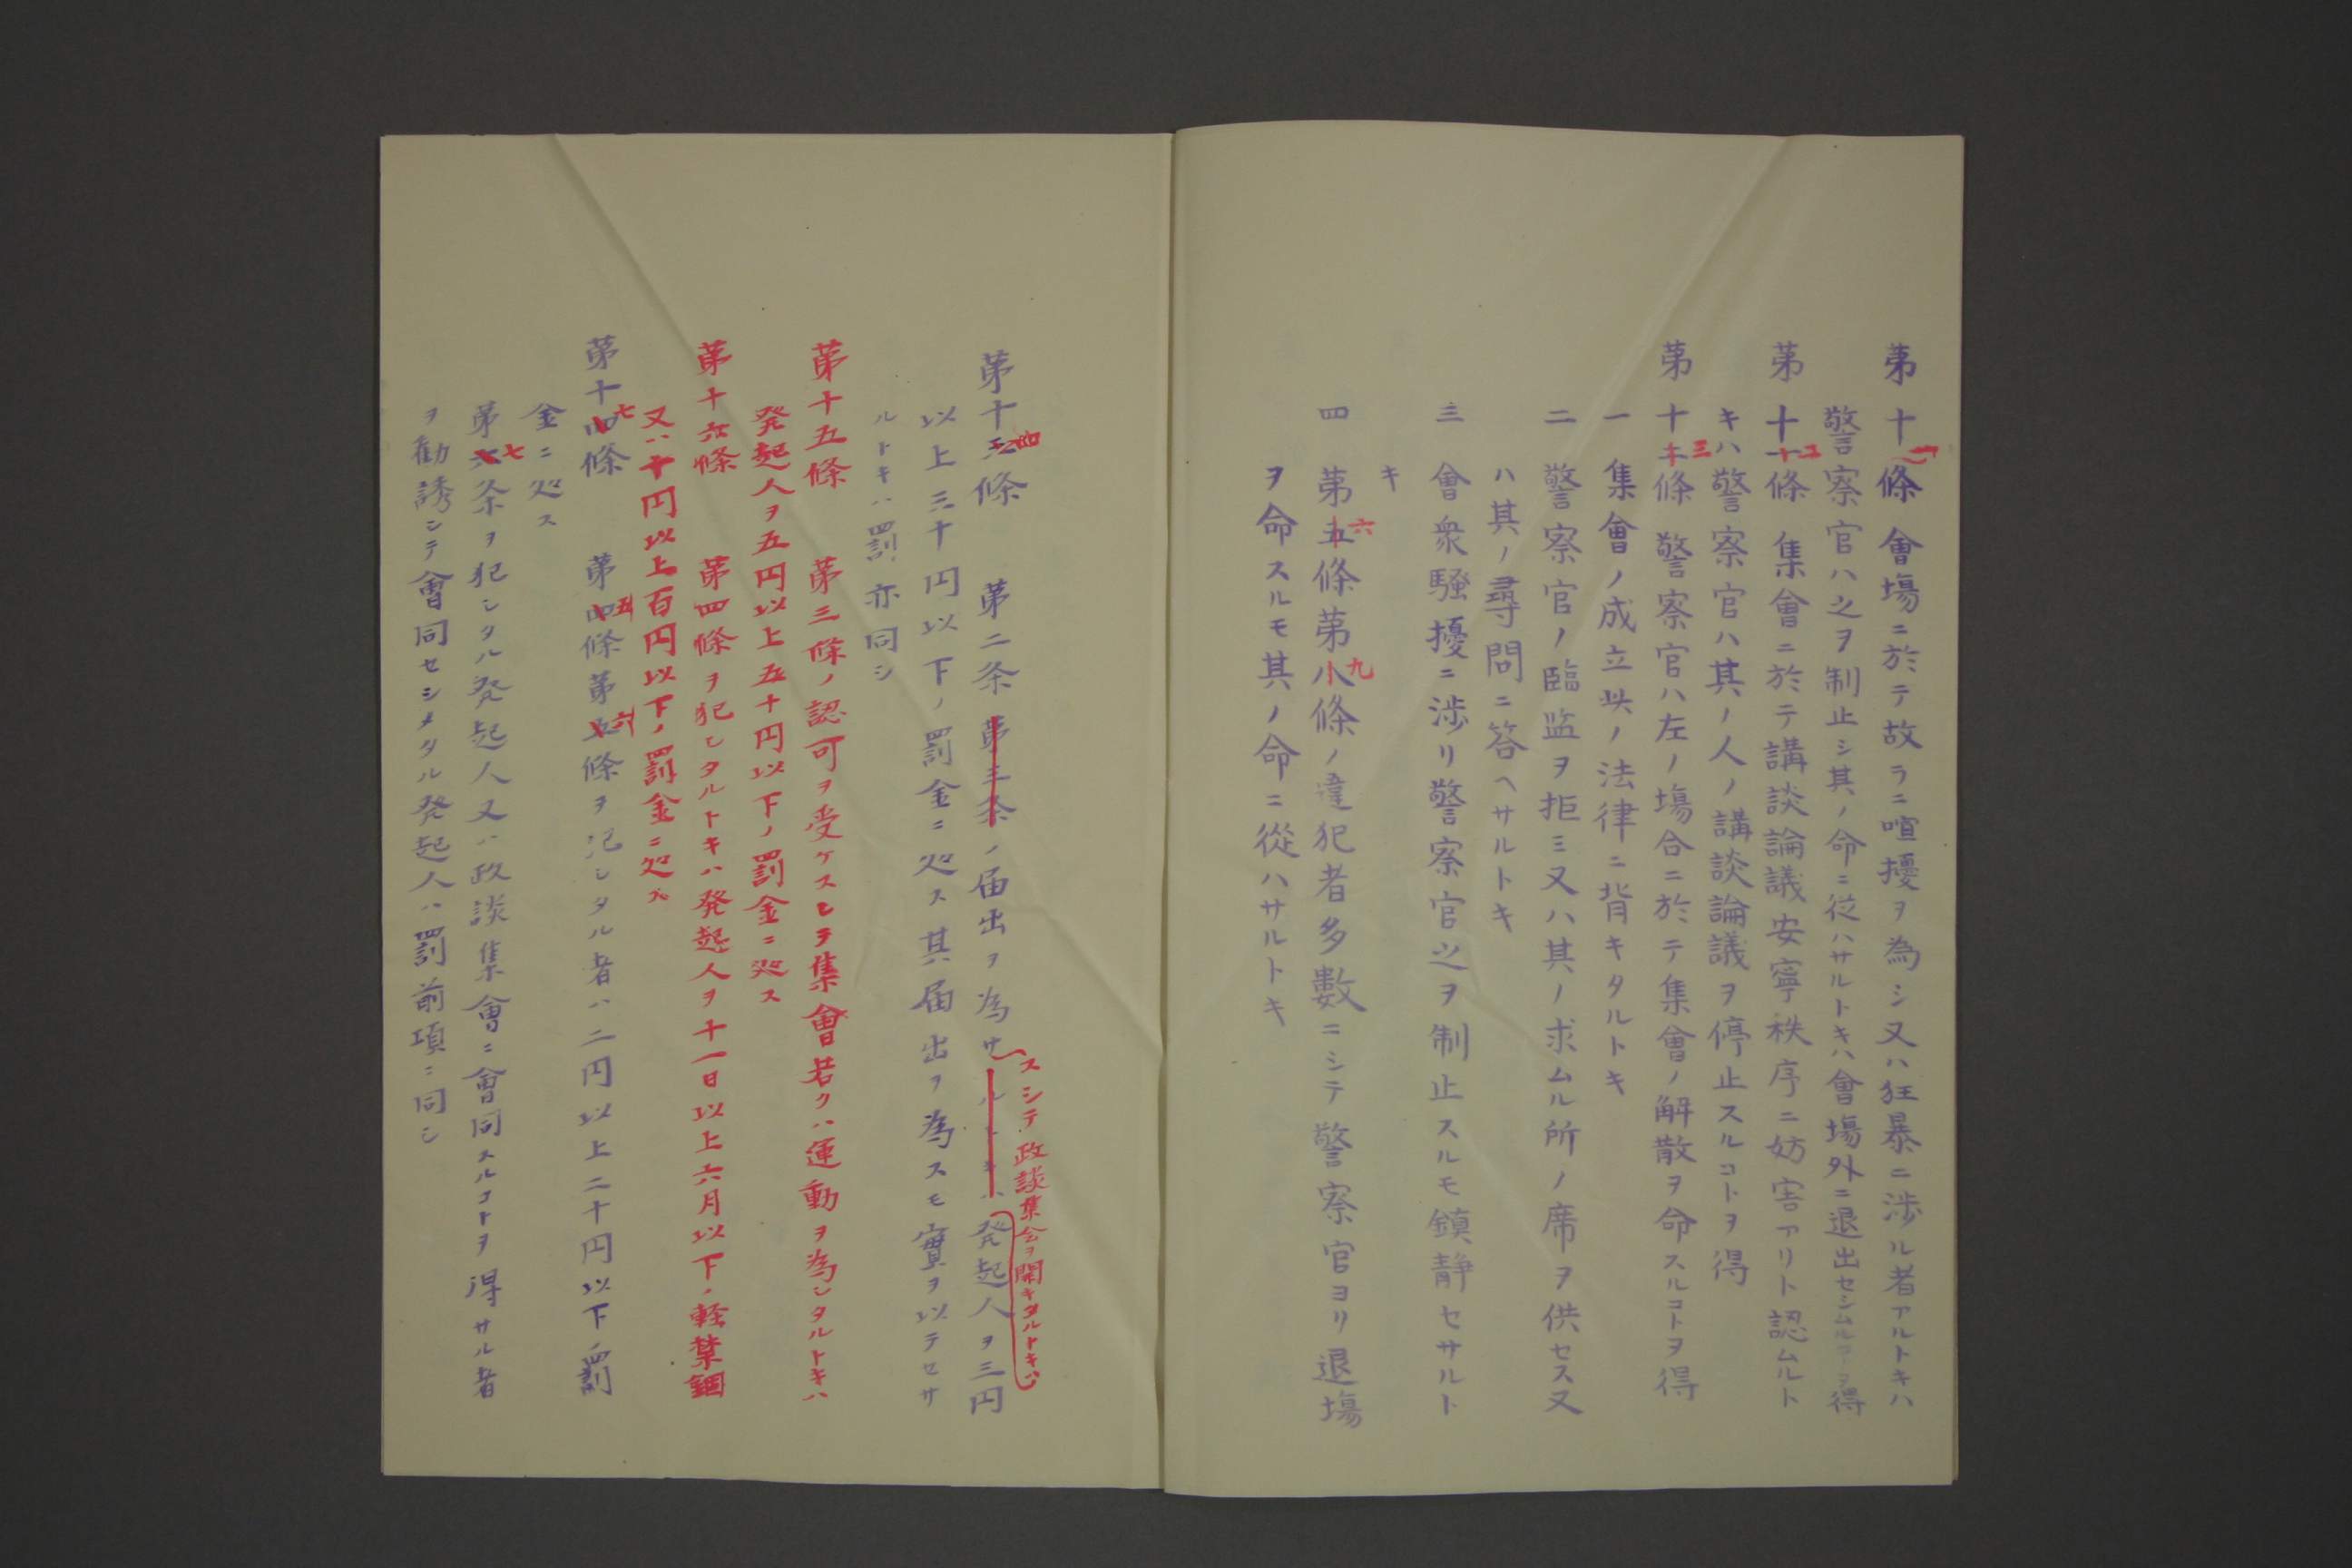 第十一條 會場ニ於テ故ラニ喧擾ヲ為シ又ハ狂暴ニ渉ル者アルトキハ
警察官ハ之ヲ制止シ其ノ命ニ從ハサルトキハ會場外ニ退出セシムルコトヲ得
第十一二條 集會ニ於テ講談論議安寧秩序ニ妨害アリト認ムルト
キハ警察官ハ其ノ人ノ講談論議ヲ停止スルコトヲ得
第十三條 警察官ハ左ノ場合ニ於テ集會ノ解散ヲ命スルコトヲ得
一 集會ノ成立此ノ法律ニ背キタルトキ
二 警察官ノ臨監ヲ拒ミ又ハ其ノ求ムル所ノ席ヲ供セス又
ハ其ノ尋問ニ答ヘサルトキ
三 會衆騒擾ニ渉リ警察官之ヲ制止スルモ鎮静セサルト
キ
四 第五六條第八九條ノ違犯者多數ニシテ警察官ヨリ退場
ヲ命スルモ其ノ命ニ從ハサルトキ
第十三四條 第二条第三条ノ届出ヲ為サルトキハ発起人ヲ三円
スシテ政談集会ヲ開キタルトキハ
以上三十円以下ノ罰金ニ処ス其届出ヲ為スモ實ヲ以テセサ
ルトキハ罰亦同シ
第十五條 第三條ノ認可ヲ受ケスシテ集會若クハ運動ヲ為シタルトキハ
発起人ヲ五円以上五十円以下ノ罰金ニ処ス
第十六條 第四條ヲ犯シタルトキハ発起人ヲ十一日以上六月以下ノ軽禁錮
又ハ十円以上百円以下ノ罰金ニ処ス
第十四七條 第四五條第五六條ヲ犯シタル者ハ二円以上二十円以下ノ罰
金ニ処ス
第六七条ヲ犯シタル発起人又ハ政談集會ニ會同スルコトヲ得サル者
ヲ勧誘シテ會同セシメタル発起人ハ罰前項ニ同シ